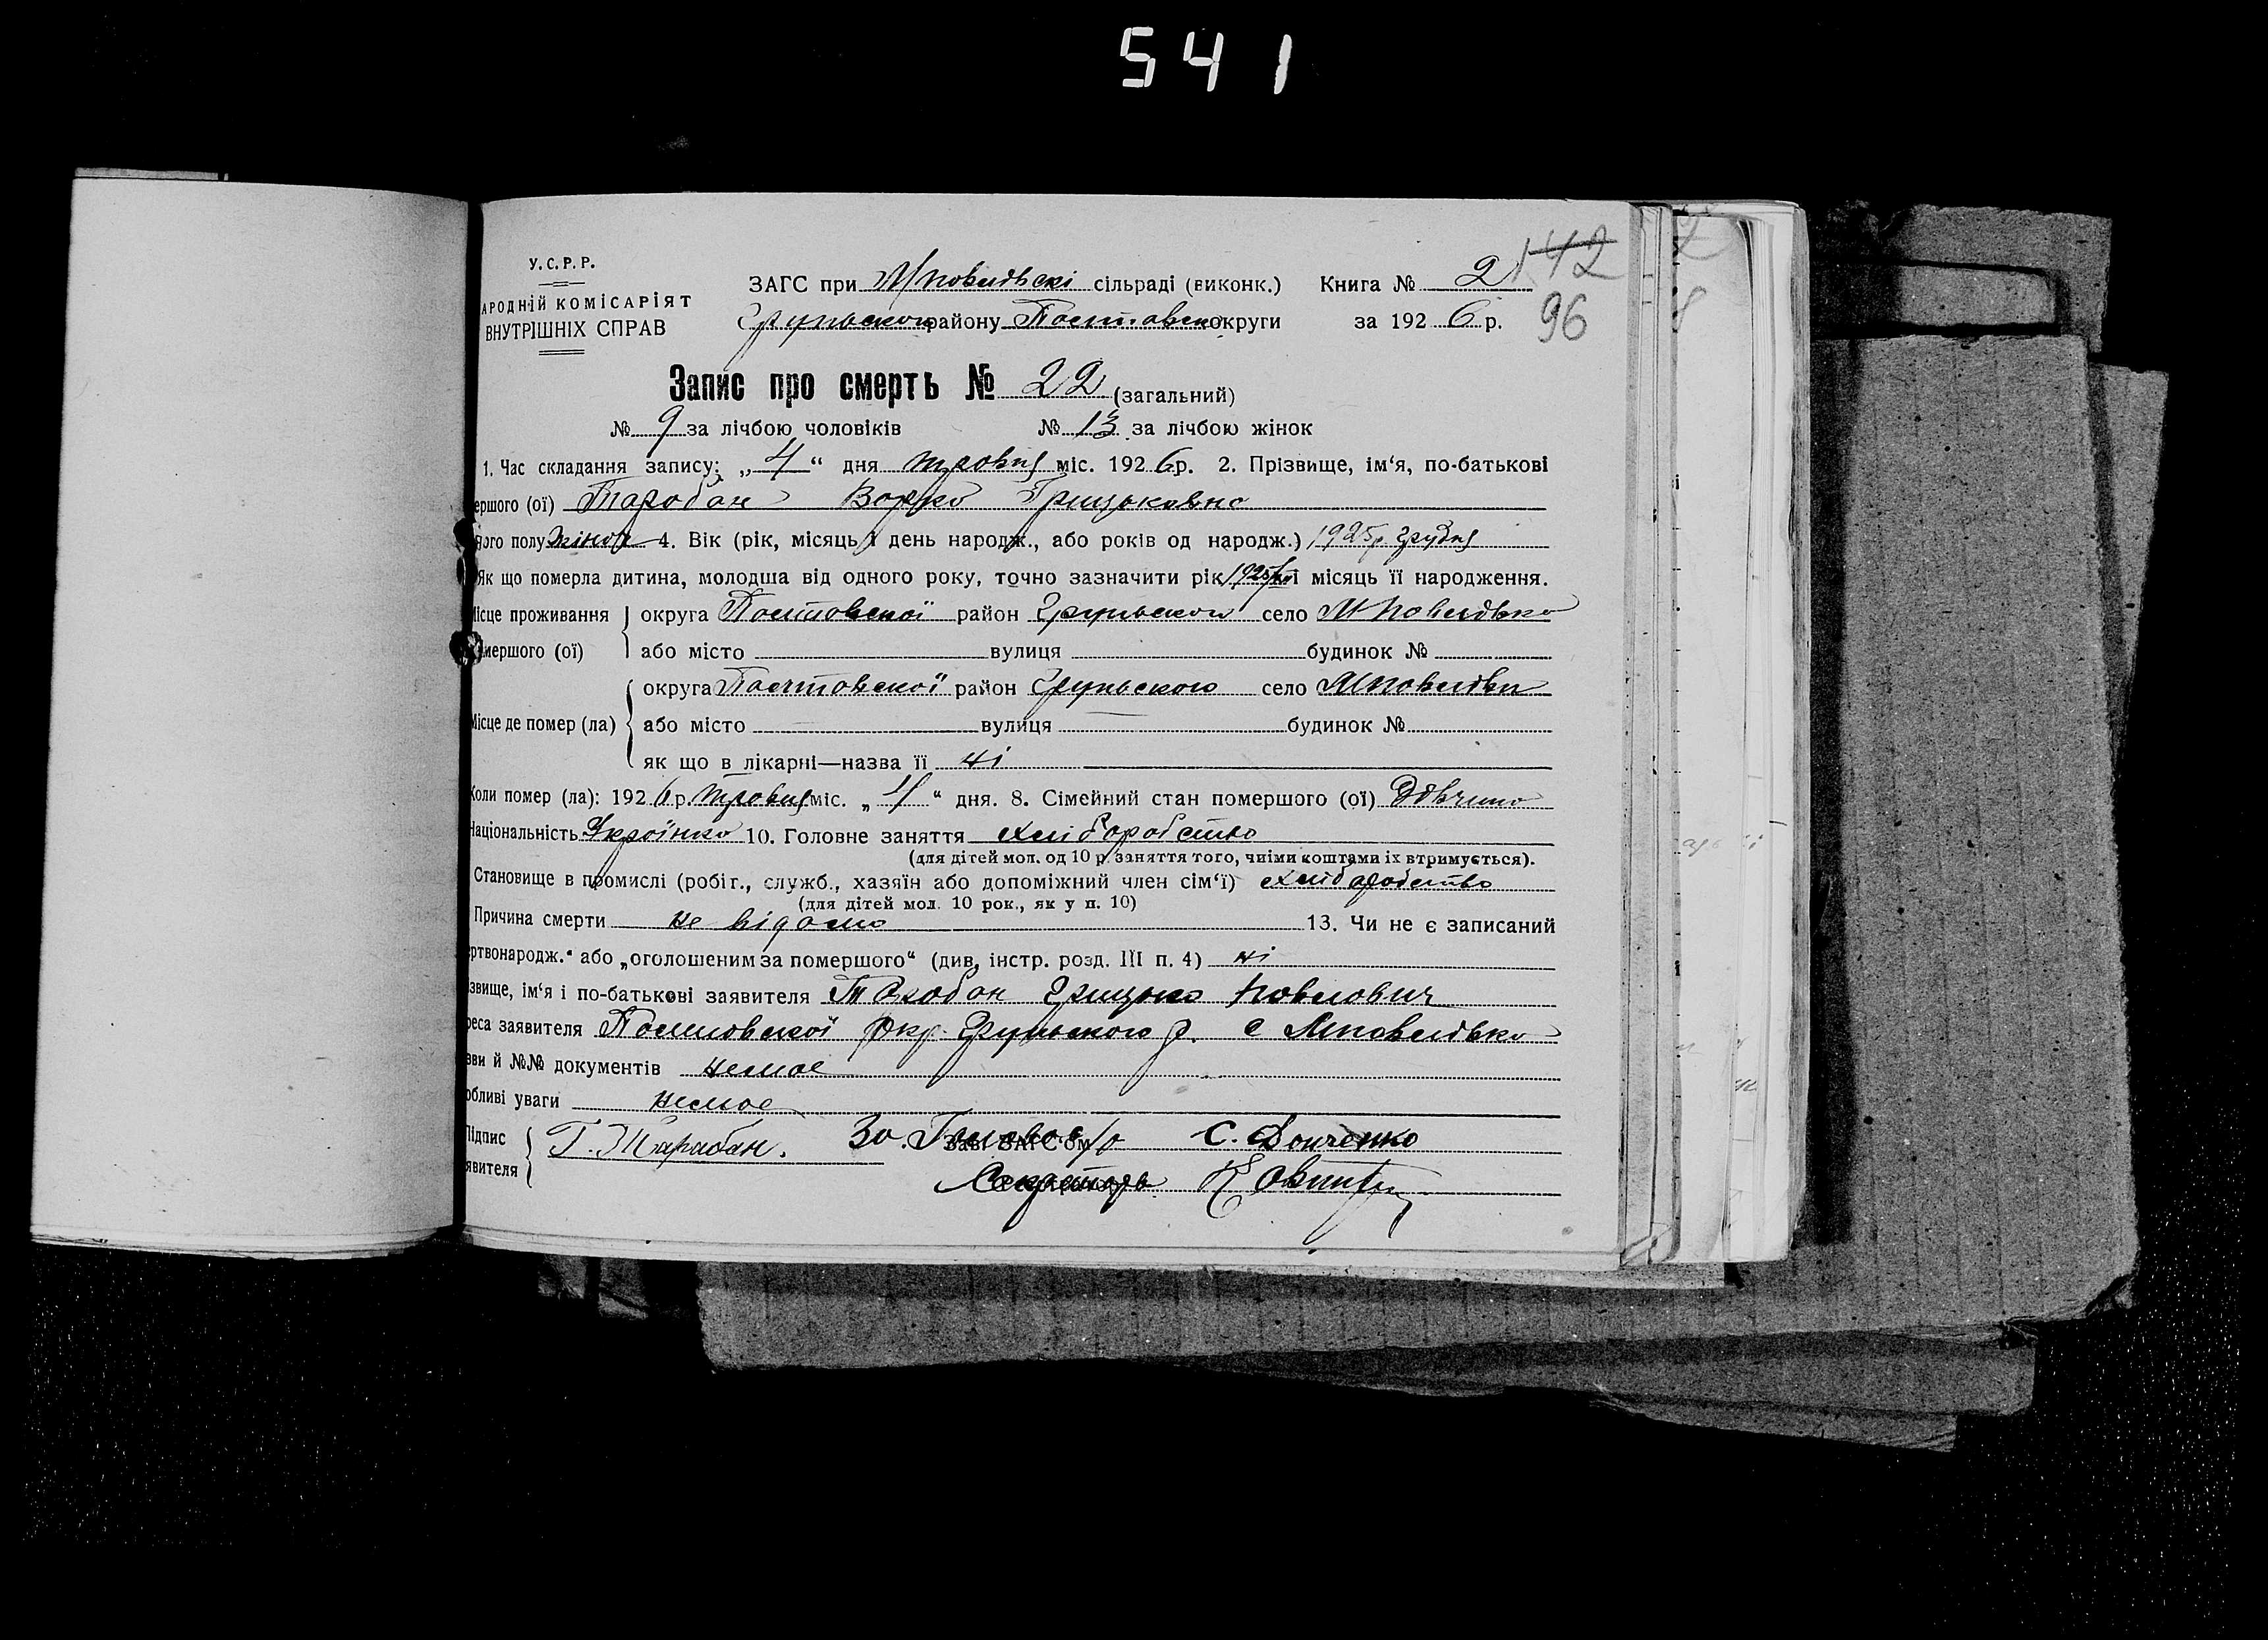 541
У.С.Р.Р.
АРОДНІЙ КОМІСАРІЯТ
ВНУТРІШНІХ СПРАВ
ЗАГС при М/повлівські сільраді (виконк.) Книга № 2 142
Грунського району Полтавської округи за 1926 р. 96
Запис про смерть № 22 (загальний)
№ 9 за лічбою чоловіків № 13 за лічбою жінок
1. Час складання запису: „4“ дня травня міс. 1926 р. 2. Прізвище, ім‘я, по-батькові
ершого (ої) Тарабан Варка Грицьковна
Його полу жіноч 4. Вік (рік, місяць і день народж., або років од народж.) 1925 р. Грудня
Як що померла дитина, молодша від одного року, точно зазначити рік 1925/XII і місяць її народження.
Місце проживання округа Полтавскої район Грунського село М Повлівка
мершого (ої) або місто вулиця будинок №
округа Полтавскої район Грунського село
Місце де помер (ла) або місто вулиця будинок №
як що в лікарні—назва її ні
Коли помер (ла): 1926 р. травня міс. „4“ дня. 8. Сімейний стан помершого (ої) Дівчина
Національність Українка 10. Головне заняття хліборобство
(для дітей мол. од 10 р. заняття того, чиїми коштами їх втримується).
Становище в промислі (робіт., служб., хазяїн або допоміжний член сім‘ї) хліборобство
(для дітей мол. 10 рок., як у п. 10)
Причина смерти не відома 13. Чи не є записаний
ертвонародж.“ або „оголошеним за помершого“ (див, інстр. розд. III п. 4) ні
звище, ім‘я і по-батькові заявителя Тарабан Грицько Повлович
реса заявителя Полтовскої окр. Грунського р. с Мповлівка
зви й №№ документів немає
обливі уваги немає
Підпис Г. Тарабан. За. Голова с/р Зав. ЗАГС‘ом С. Донченко
явителя Секретарь